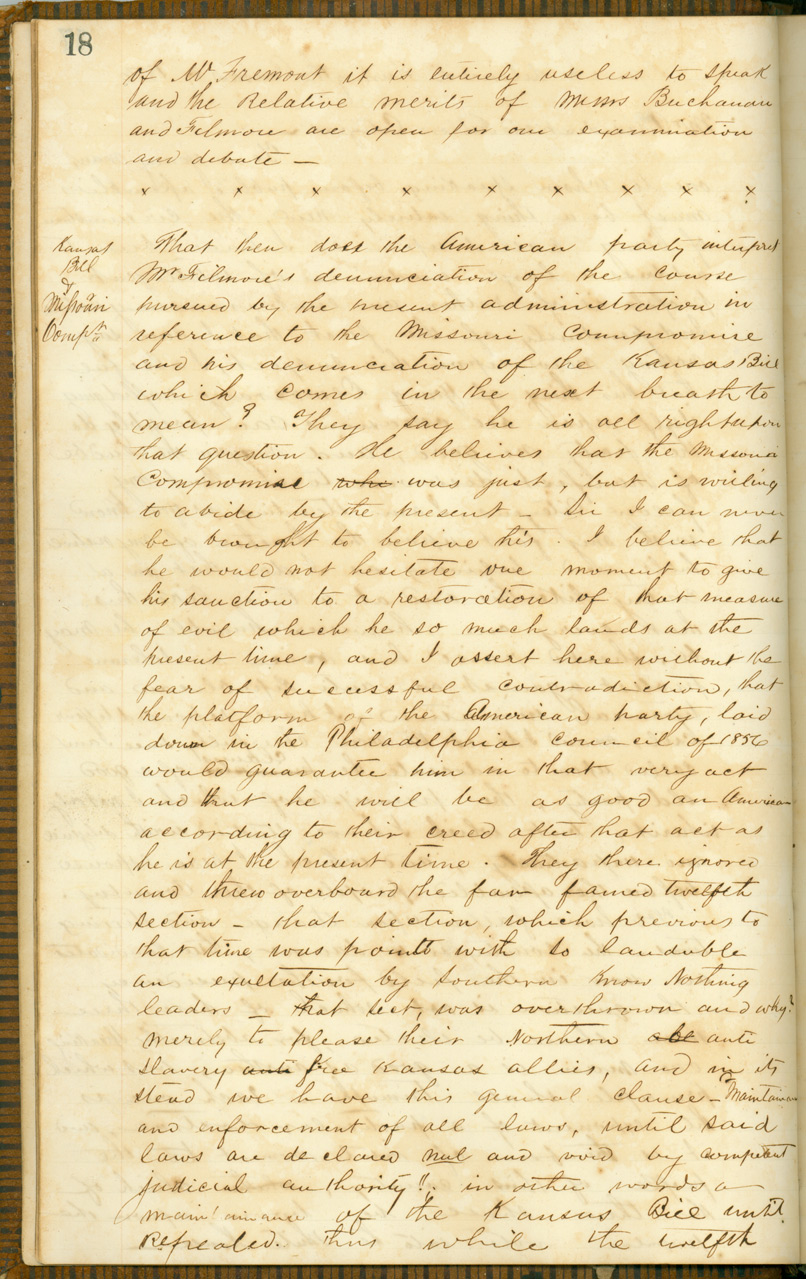 18
of Mr. Fremont it is entirely useless to speak
and the Relative merits of Messrs Buchanan
and Filmore are open for our examination
and debate —
x x x x x x x x x
Kansas
Bill
&
Missouri
Comp
That then does the American party interpret
Mr Filmore's denunciation of the course
pursued by the present administration in
reference to the Missouri Compromise
and his denunciation of the Kansas Bill
which comes in the next breath to
mean? They say he is all right upon
that question. He believes that the Missouri
Compromise who was just, but is willing
to abide by the present – Sir I can never
be brought to believe this. I believe that
he would not hesitate one moment to give
his sanction to a restoration of that measure
of evil which he so much lauds at the
present time, and I assert here without the
fear of successful contradiction, that
the platform of the American party, laid
down in the Philadelphia council of 1856
would guarantee him in that very act
and that he will be as good an American
according to their creed after that act as
he is at the present time. They there ignored
and threw overboard the far famed twelfth
section – that section, which previous to
that time was pointt with so laudable
an exultation by Southern Know Nothing
leaders – that sect, was overthrown and why?
merely to please their Northern abe anti
slavery anti free Kansas allies, and in its
stead we have this general clause – "Maintainance
and enforcement of all laws, until said
laws are declared nul and void by competent
judicial authority"! in other words a
maintainance of the Kansas Bill until
Repealed. Thus while the twelfth